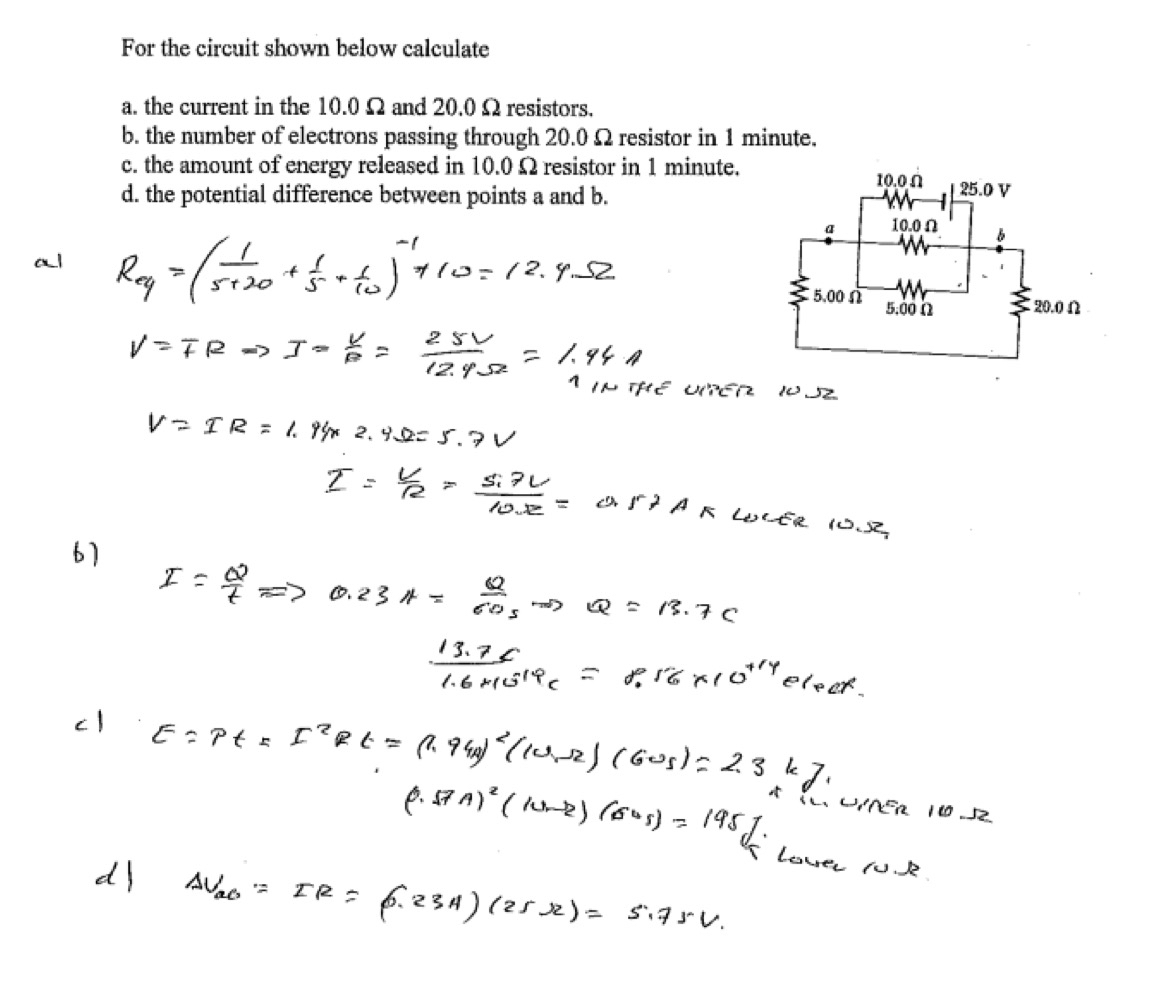 For the circuit shown below calculate
a. the current in the 10.0 Ω and 20.0 Ω resistors.
b. the number of electrons passing through 20.0 Ω resistor in 1 minute.
c. the amount of energy released in 10.0 Ω resistor in 1 minute.
d. the potential difference between points a and b.
10.0 Ω
25.0 V
10.0 Ω
a
b
5.00 Ω
5.00 Ω
20.0 Ω
a) Req = (1/(5+20) + 1/5 + 1/10)^-1 + 10 = 12.9 Ω
V = IR => I = V/R = 25V/12.9Ω = 1.94 A
↑ IN THE UPPER 10 Ω
V = IR = 1.94 × 2.9Ω = 5.7V
I = V/R = 5.7V/10Ω = 0.57 A ↖ LOWER 10 Ω
b) I = Q/t => 0.23 A = Q/60s => Q = 13.7 C
13.7 C/1.6×10^-19 C = 8.56 × 10^+19 elect.
c) E = Pt = I²Rt = (1.94A)²(10Ω)(60s) = 2.3 kJ.
↖ in UPPER 10 Ω
(0.57 A)²(10Ω)(60s) = 195 J.
↖ Lower 10 Ω
d) ΔVab = IR = (0.23A)(25Ω) = 5.75V.